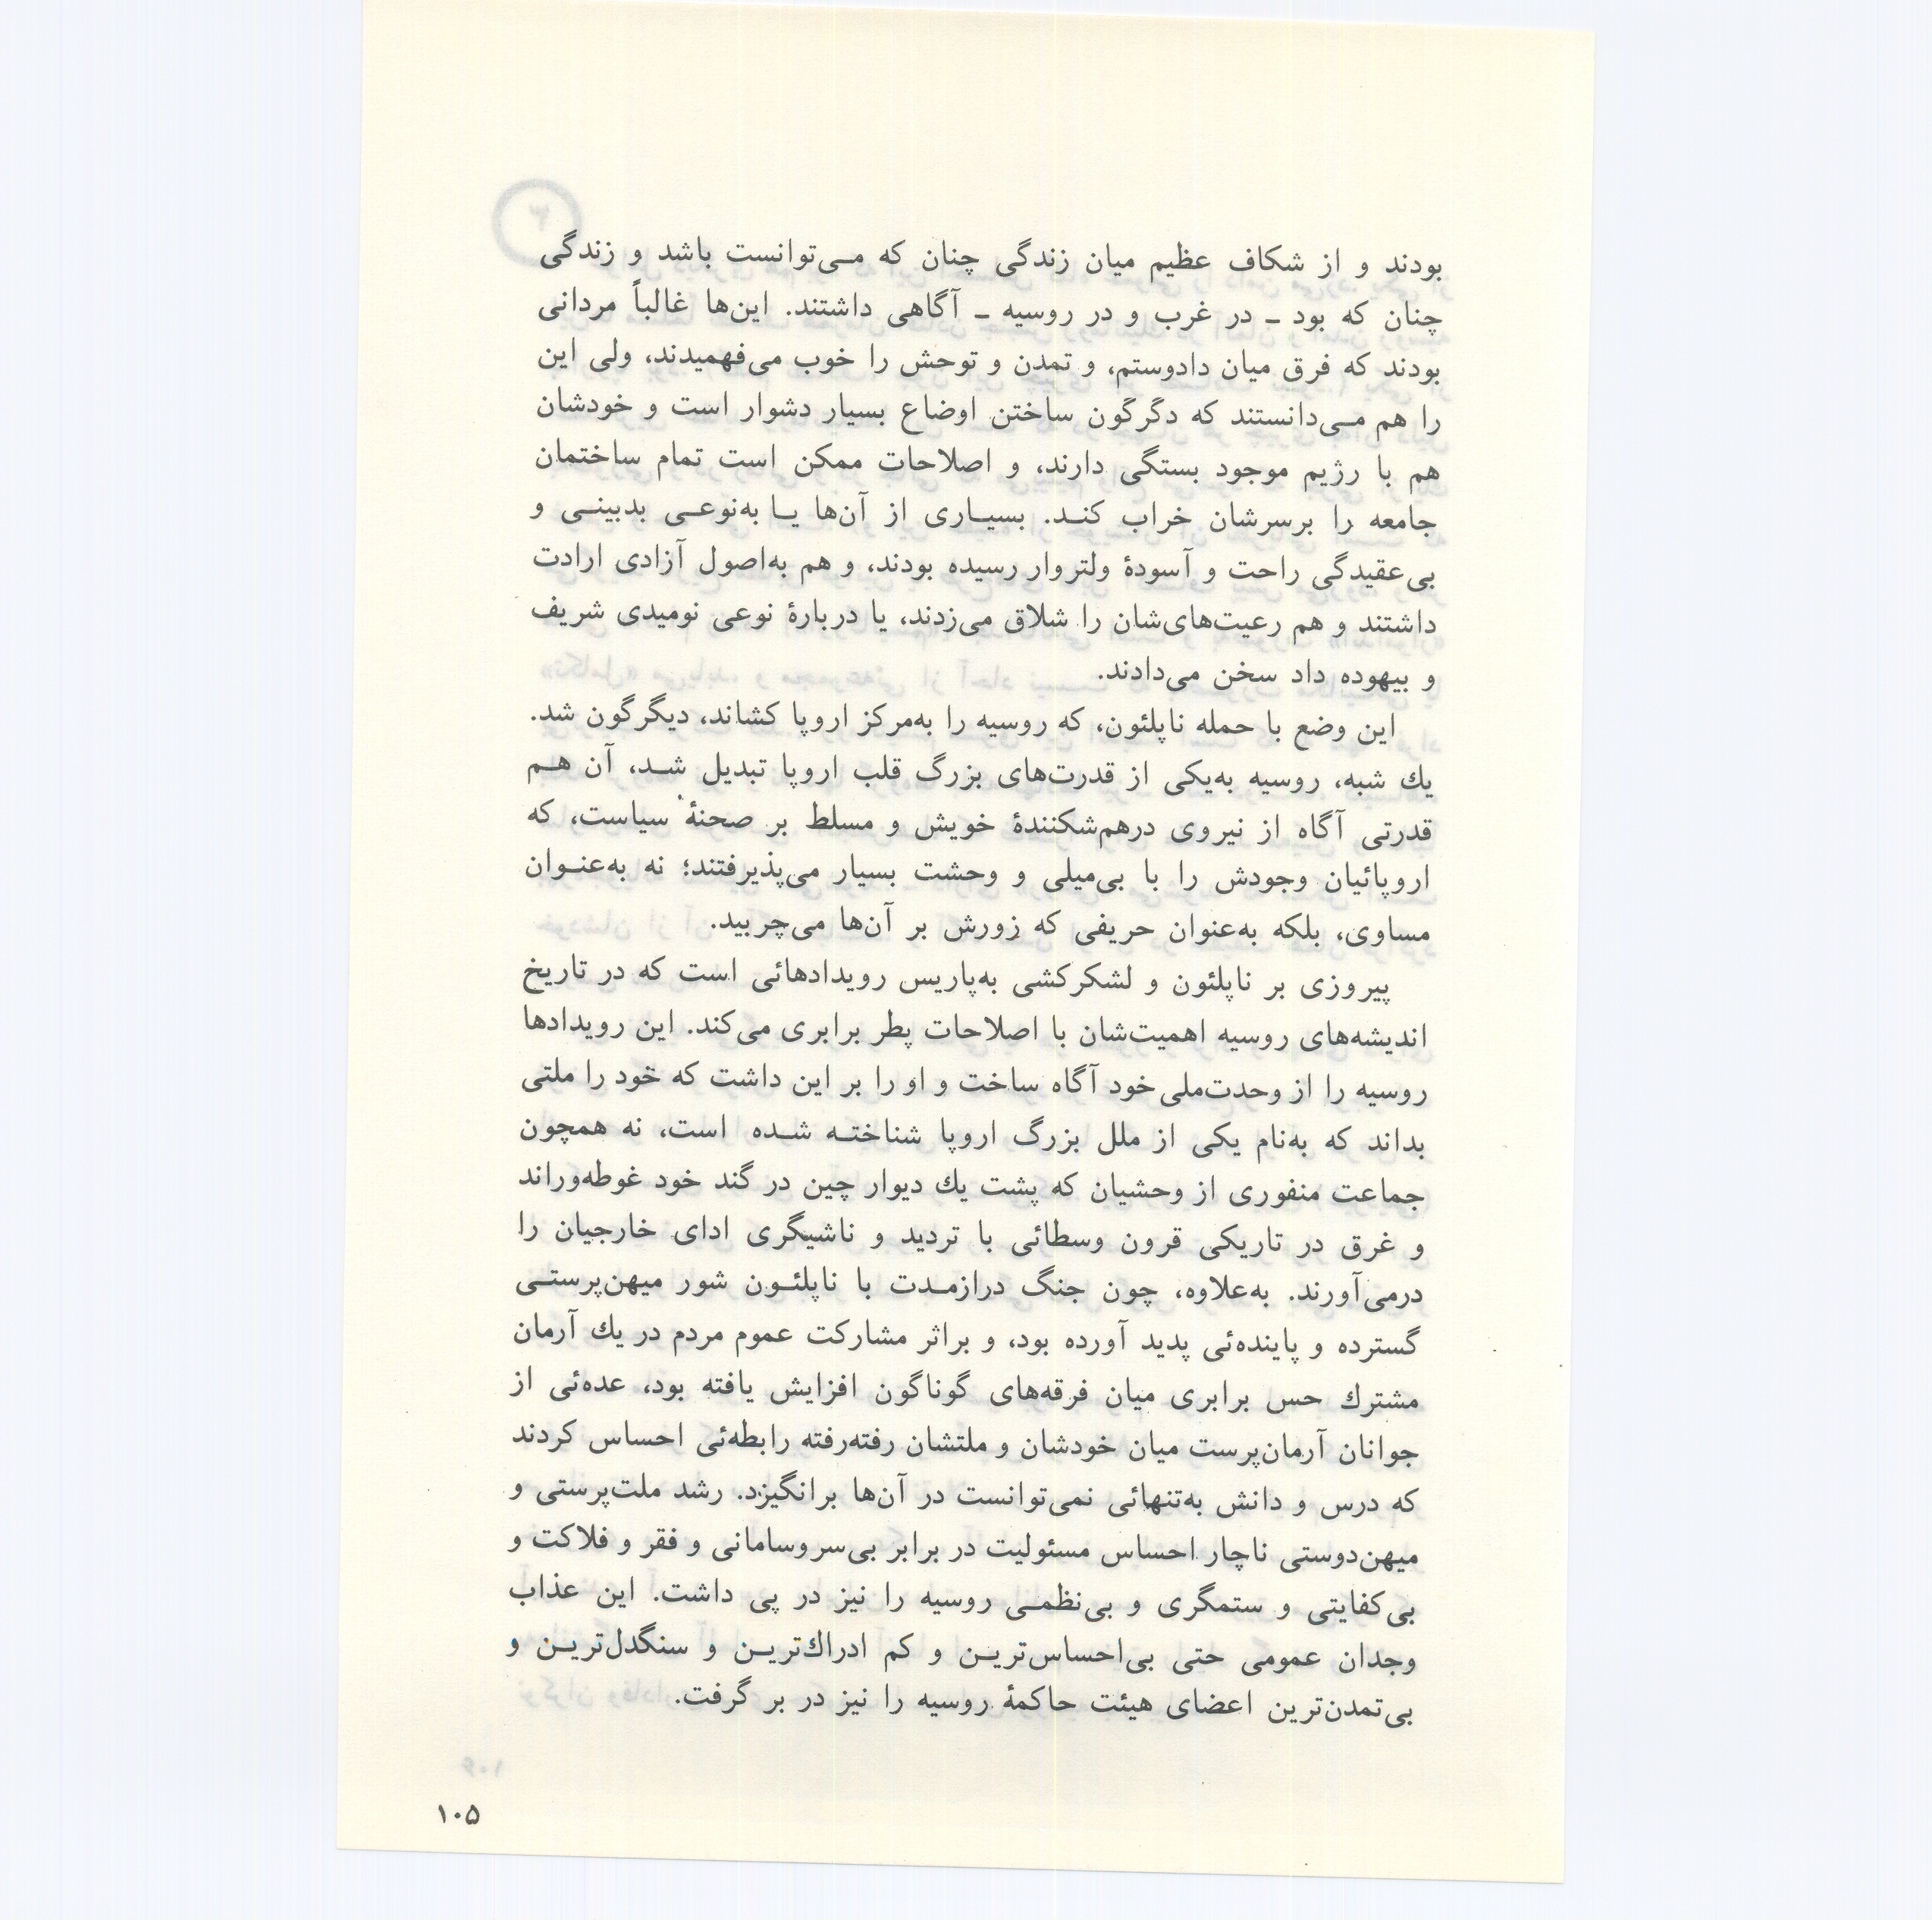 بودند و از شکاف عظیم میان زندگی چنان که می‌توانست باشد و زندگی
چنان که بود ـ در غرب و در روسیه ـ آگاهی داشتند. این‌ها غالباً مردانی
بودند که فرق میان دادوستم، و تمدن و توحش را خوب می‌فهمیدند، ولی این
را هم می‌دانستند که دگرگون ساختن اوضاع بسیار دشوار است و خودشان
هم با رژیم موجود بستگی دارند، و اصلاحات ممکن است تمام ساختمان
جامعه را برسرشان خراب کند. بسیاری از آن‌ها یا به‌نوعی بدبینی و
بی‌عقیدگی راحت و آسودهٔ ولتروار رسیده بودند، و هم به‌اصول آزادی ارادت
داشتند و هم رعیت‌های‌شان را شلاق می‌زدند، یا دربارهٔ نوعی نومیدی شریف
و بیهوده داد سخن می‌دادند.
این وضع با حمله ناپلئون، که روسیه را به‌مرکز اروپا کشاند، دیگرگون شد.
یك شبه، روسیه به‌یکی از قدرت‌های بزرگ قلب اروپا تبدیل شد، آن هم
قدرتی آگاه از نیروی درهم‌شکنندهٔ خویش و مسلط بر صحنهٔ سیاست، که
اروپائیان وجودش را با بی‌میلی و وحشت بسیار می‌پذیرفتند؛ نه به‌عنوان
مساوی، بلکه به‌عنوان حریفی که زورش بر آن‌ها می‌چربید.
پیروزی بر ناپلئون و لشکرکشی به‌پاریس رویدادهائی است که در تاریخ
اندیشه‌های روسیه اهمیت‌شان با اصلاحات پطر برابری می‌کند. این رویدادها
روسیه را از وحدت‌ملی خود آگاه ساخت و او را بر این داشت که خود را ملتی
بداند که به‌نام یکی از ملل بزرگ اروپا شناخته شده است، نه همچون
جماعت منفوری از وحشیان که پشت یك دیوار چین در گند خود غوطه‌وراند
و غرق در تاریکی قرون وسطائی با تردید و ناشیگری ادای خارجیان را
درمی‌آورند. به‌علاوه، چون جنگ درازمدت با ناپلئون شور میهن‌پرستی
گسترده و پاینده‌ئی پدید آورده بود، و براثر مشارکت عموم مردم در یك آرمان
مشترك حس برابری میان فرقه‌های گوناگون افزایش یافته بود، عده‌ئی از
جوانان آرمان‌پرست میان خودشان و ملتشان رفته‌رفته رابطه‌ئی احساس کردند
که درس و دانش به‌تنهائی نمی‌توانست در آن‌ها برانگیزد. رشد ملت‌پرستی و
میهن‌دوستی ناچار احساس مسئولیت در برابر بی‌سروسامانی و فقر و فلاکت و
بی‌کفایتی و ستمگری و بی‌نظمی روسیه را نیز در پی داشت. این عذاب
وجدان عمومی حتی بی‌احساس‌ترین و کم ادراك‌ترین و سنگدل‌ترین و
بی‌تمدن‌ترین اعضای هیئت حاکمهٔ روسیه را نیز در بر گرفت.
۱۰۵